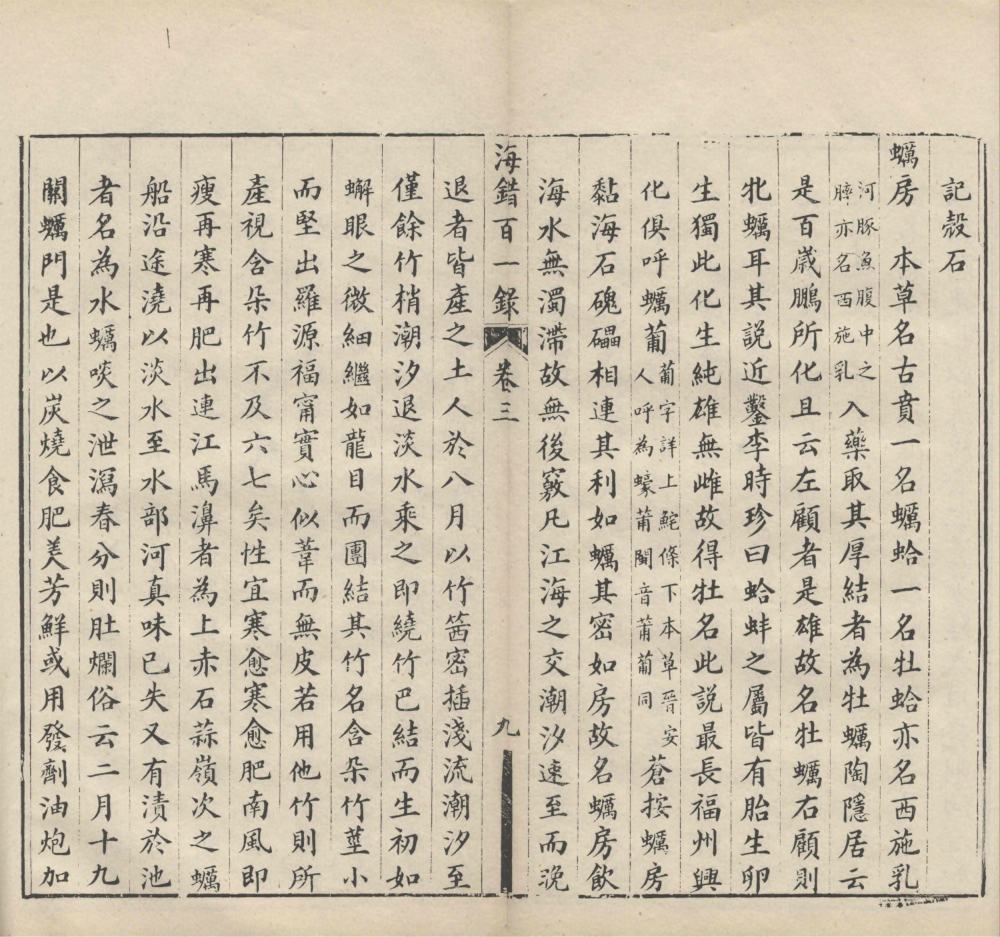 記殼石
蠣房　本草名古賁一名蠣蛤一名牡蛤亦名西施乳
河豚魚腹中之
膟亦名西施乳
入藥取其厚結者為牡蠣陶隱居云
是百歲鵬所化且云左顧者是雄故名牡蠣右顧則
牝蠣耳其說近鑿李時珍曰蛤蚌之屬皆有胎生卵
生獨此化生純雄無雌故得牡名此說最長福州興
化俱呼蠣葡
葡字詳上鮀條下本草晉安
人呼為蠔莆閩音莆葡同
蒼按蠣房
黏海石磈礧相連其利如蠣其密如房故名蠣房飲
海水無濁滯故無後竅凡江海之交潮汐速至而晚
海錯百一錄
卷三
九
退者皆產之土人於八月以竹茜密插淺流潮汐至
僅餘竹梢潮汐退淡水乘之即繞竹巴結而生初如
蠏眼之微細繼如龍目而團結其竹名含朵竹莖小
而堅出羅源福甯實心似葦而無皮若用他竹則所
產視含朵竹不及六七矣性宜寒愈寒愈肥南風即
瘦再寒再肥出連江馬濞者為上赤石蒜嶺次之蠣
船沿途澆以淡水至水部河真味已失又有漬於池
者名為水蠣啖之泄瀉春分則肚爛俗云二月十九
關蠣門是也以炭燒食肥美芳鮮或用發劑油炮加